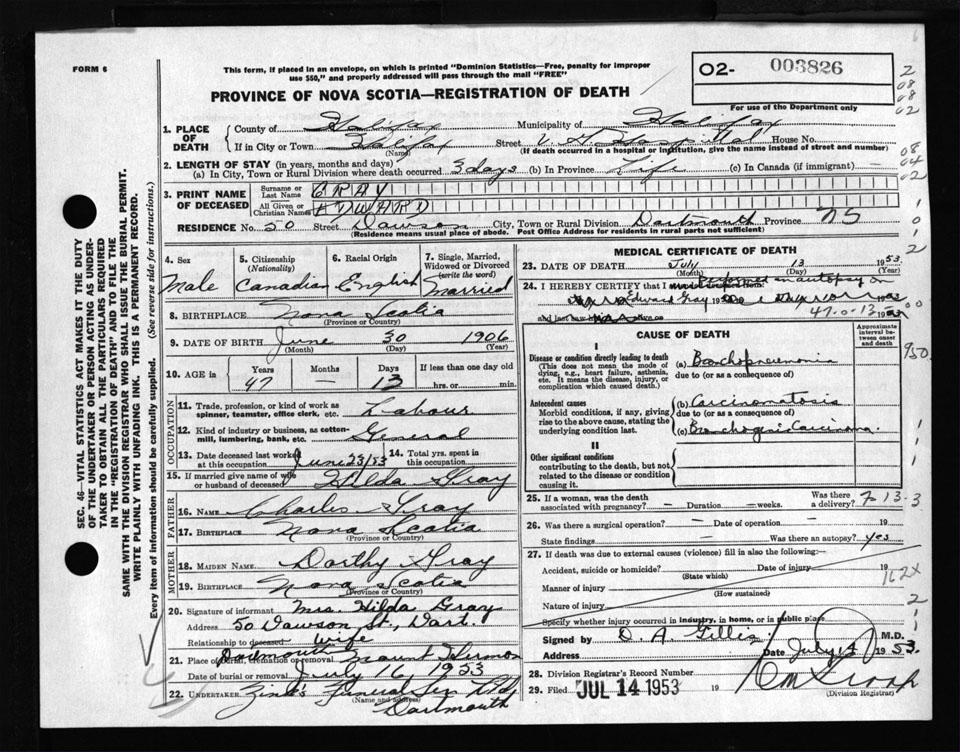 FORM 6
This form, if placed in an envelope, on which is printed "Dominion Statistics—Free, penalty for improper
use $50," and properly addressed will pass through the mail "FREE"
O2- 003826
PROVINCE OF NOVA SCOTIA—REGISTRATION OF DEATH
For use of the Department only
1. PLACE OF DEATH
County of Halifax Municipality of Halifax
If in City or Town Halifax Street V.G. Hospital House No.
(Name) (If death occurred in a hospital or institution, give the name instead of street and number)
2. LENGTH OF STAY (in years, months and days)
(a) In City, Town or Rural Division where death occurred 3 days (b) In Province Life (c) In Canada (if immigrant) —
3. PRINT NAME OF DECEASED
Surname or Last Name GRAY
All Given or Christian Names EDWARD
RESIDENCE No. 50 Street Dawson City, Town or Rural Division Dartmouth Province NS
(Residence means usual place of abode. Post Office Address for residents in rural parts not sufficient)
4. Sex Male
5. Citizenship (Nationality) Canadian
6. Racial Origin English
7. Single, Married, Widowed or Divorced (write the word) Married
8. BIRTHPLACE Nova Scotia
(Province or Country)
9. DATE OF BIRTH June 30 1906
(Month) (Day) (Year)
10. AGE in Years 47 Months — Days 13 If less than one day old hrs. or min.
OCCUPATION
11. Trade, profession, or kind of work as spinner, teamster, office clerk, etc. Labour
12. Kind of industry or business, as cotton-mill, lumbering, bank, etc. General
13. Date deceased last worked at this occupation June 23/53 14. Total yrs. spent in this occupation
15. If married give name of wife or husband of deceased Hilda Gray
FATHER
16. NAME Charles Gray
17. BIRTHPLACE Nova Scotia
(Province or Country)
MOTHER
18. MAIDEN NAME Dorthy Gray
19. BIRTHPLACE Nova Scotia
(Province or Country)
20. Signature of informant Mrs. Hilda Gray
Address 50 Dawson St., Dart.
Relationship to deceased Wife
Dartmouth
21. Place of burial, cremation or removal Mount Hermon
Date of burial or removal July 16, 1953
22. UNDERTAKER Zink's Funeral Ser Ltd
(Name and address)
Dartmouth
MEDICAL CERTIFICATE OF DEATH
23. DATE OF DEATH July 13 1953
(Month) (Day) (Year)
24. I HEREBY CERTIFY that I performed an autopsy on
Edward Gray
and last saw
47-0-13
CAUSE OF DEATH
Approximate interval between onset and death
I
Disease or condition directly leading to death
(This does not mean the mode of dying, e.g., heart failure, asthenia, etc. It means the disease, injury, or complication which caused death.)
(a) Bronchopneumonia
due to (or as a consequence of)
Antecedent causes
Morbid conditions, if any, giving rise to the above cause, stating the underlying condition last.
(b) Carcinomatosis
due to (or as a consequence of)
(c) Bronchogenic Carcinoma.
II
Other significant conditions
contributing to the death, but not related to the disease or condition causing it.
25. If a woman, was the death associated with pregnancy? — Duration — weeks. Was there a delivery?
7-13-3
26. Was there a surgical operation? — Date of operation — 19
State findings — Was there an autopsy? yes
27. If death was due to external causes (violence) fill in also the following:—
Accident, suicide or homicide? Date of injury 19
(State which)
Manner of injury
(How sustained)
Nature of injury
Specify whether injury occurred in industry, in home, or in public place
Signed by D. A. Gillis M.D.
Address Date July 14 1953.
28. Division Registrar's Record Number
29. Filed JUL 14 1953 19
(Division Registrar)
SEC. 46—VITAL STATISTICS ACT MAKES IT THE DUTY
OF THE UNDERTAKER OR PERSON ACTING AS UNDERTAKER
TO OBTAIN ALL THE PARTICULARS REQUIRED
IN THE "REGISTRATION OF DEATH" AND TO FILE THE
SAME WITH THE DIVISION REGISTRAR WHO SHALL ISSUE THE BURIAL PERMIT.
WRITE PLAINLY WITH UNFADING INK. THIS IS A PERMANENT RECORD.
Every item of information should be carefully supplied. (See reverse side for instructions.)
2
08
08
02
08
04
02
950
162X